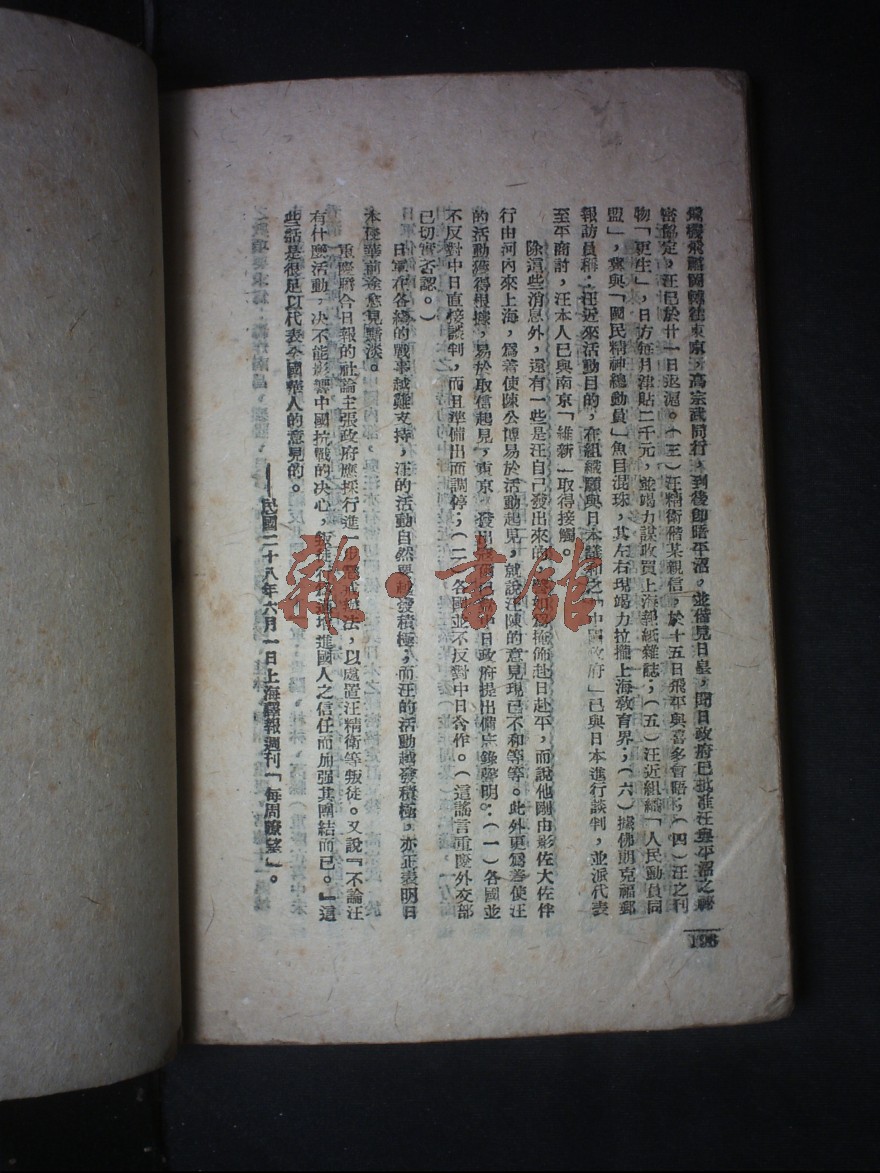 飛機飛臨岡轉往東京，高宗武同行，到後即晤平沼，並偕見日皇，聞日政府已批准汪與平沼之祕
密協定，汪已於廿一日返滬。（三）汪精衛偕某親信，於十五日飛平與喜多會晤；（四）汪之刊
物「更生」，日方每月津貼二千元，並竭力謀收買上海報紙雜誌；（五）汪近組織「人民動員同
盟」，冀與「國民精神總動員」魚目混珠，其左右現竭力拉攏上海敎育界；（六）據佛朗克福郵
報訪員稱：汪近來活動目的，在組織願與日本議和之「中國政府」已與日本進行談判，並派代表
至平商討，汪本人已與南京「維新」取得接觸。
除這些消息外，還有一些是汪自己發出來的，譬如爲掩飾赴日赴平，而說他剛由影佐大佐伴
行由河內來上海，爲善使陳公博易於活動起見，就說汪陳的意見現已不和等等。此外更爲善使汪
的活動獲得根據，易於取信起見，東京發出 已 中日政府提出備忘錄聲明：（一）各國並
不反對中日直接談判，而且準備出而調停；（二）各國並不反對中日合作。（這謠言重慶外交部
已切實否認。）
日軍在各綫的戰事越難支持，汪的活動自然要越發積極；而汪的活動越發積極，亦正表明日
本侵華前途愈見黯淡。
重慶聯合日報的社論主張政府應採行進一步 辦法，以處置汪精衛等叛徒。又說『不論汪
有什麼活動，决不能影響中國抗戰的决心，叛徒行爲適增進國人之信任而加强其團結而已。』這
些話是很足以代表全國華人的意見的。
——民國二十八年六月一日上海譯報週刊「每周瞭望」。
196
雜·書館